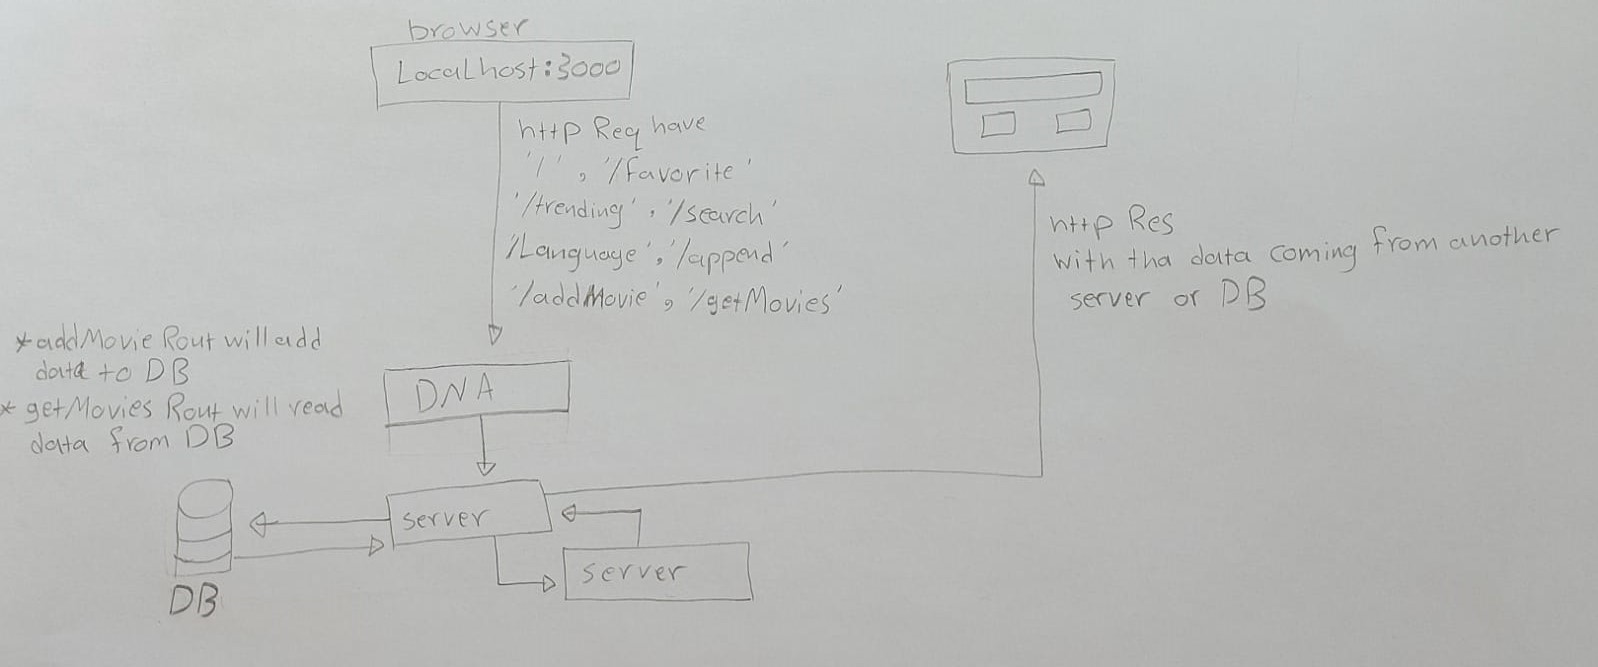 browser
Localhost:3000
http Req have
'/' , '/favorite'
'/trending' , '/search'
'/Language' , '/append'
'/addMovie' , '/getMovies'
http Res
with tha data coming from another
server or DB
* addMovie Rout will add
data to DB
* getMovies Rout will read
data from DB
DNA
server
server
DB